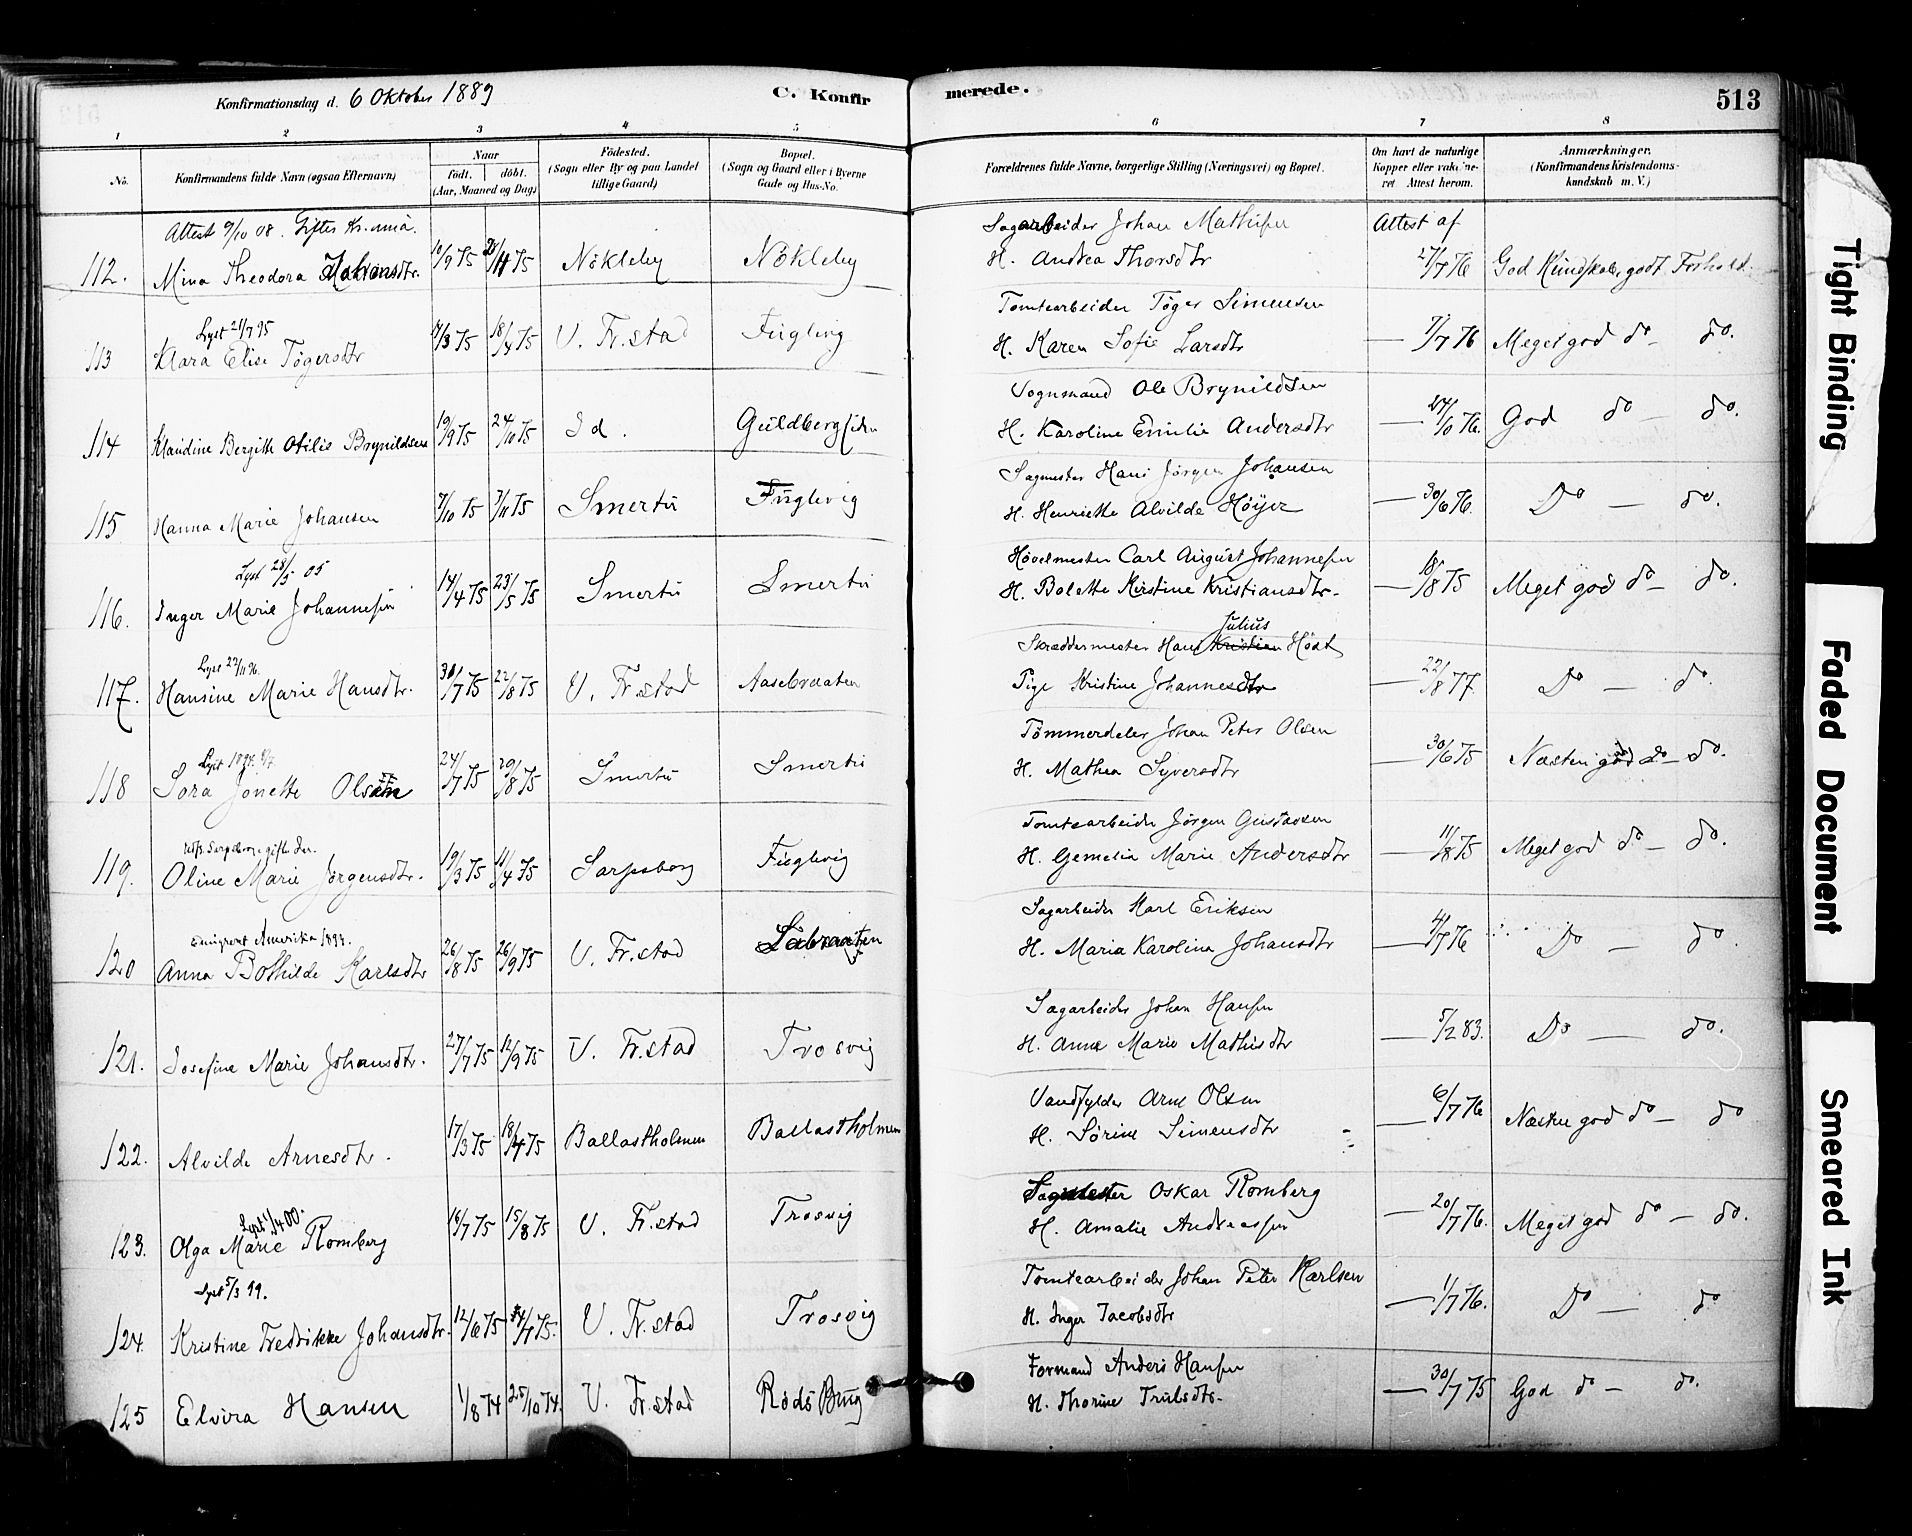 Konfirmationsdag d. 6 Oktober 1889
C. Konfirmerede.
513
1 2 3 4 5 6 7 8
No.
Konfirmandens fulde Navn (ogsaa Efternavn)
Naar
födt. döbt.
(Aar, Maaned og Dag)
Födested.
(Sogn eller By og paa Landet
tillige Gaard)
Bopæl.
(Sogn og Gaard eller i Byerne
Gade og Hus-No.
Forældrenes fulde Navne, borgerlige Stilling (Næringsvei) og Bopæl.
Om havt de naturlige
Kopper eller vakcine-
ret. Attest herom.
Anmærkninger.
(Konfirmandens Kristendoms-
kundskab m. V.)
Attest 9/10 08. Giftes Kr.ania. Sagarbeider Johan Mathisen Attest af
112. Mina Theodora Johansdtr. 10/9 75 /11 75 Nökleby Nökleby H. Andrea Thorsdtr 27/7 76 God Kundskab, godt Forhold.
Lyst 21/7 95 Tomtearbeider Töger Simensen
113 Klara Elise Tögersdtr /3 75 18/4 75 V. Fr.stad Fuglevig H. Karen Sofie Larsdtr — 7/7 76 Meget god do — do.
Vognmand Ole Brynildsen
114 Klaudine Bergitte Otilie Brynildsen 19/9 75 24/10 75 Id. Guldbergsiden H. Karoline Emilie Andersdtr — 76. God do — do.
Sagmester Hans Jörgen Johansen
115 Hanna Marie Johansen 7/10 75 7/11 75 Smertu Fuglevig H. Henriette Alvilde Höyer — 30/6 76. Do — do.
Lyst 28/5 05 Hövelmester Carl August Johannesen
116. Inger Marie Johannesen 14/4 75 23/5 75 Smertu Smertu H. Bolette Kirstine Kristiansdtr. — 18/8 75 Meget god do — do.
Julius
Lyst 22/11 96. Skræddermester Hans Kristian Höst
117. Hansine Marie Hansdtr. 30/7 75 22/8 75 V. Fr.stad Aasebraaten Pige Kristine Johannesdtr — 22/8 77. Do — do.
Tömmerdeler Johan Peter Olsen
118 Sora Jonette Olsen 24/7 75 29/8 75 Smertu Smertu H. Mathea Syversdtr — 30/6 75 Næsten god do — do.
Sarpsborg gifte der. Tomtearbeider Jörgen Gustavsen
119. Oline Marie Jörgensdtr. 19/3 75 11/4 75 Sarpsborg Fuglevig H. Gemelia Marie Andersdtr — 11/8 75 Meget god do — do.
Emigreret Amerika 1893. Sagarbeider Karl Eriksen
120 Anna Bothilde Karlsdtr 26/8 75 26/9 75 V. Fr.stad H. Maria Karolina Johansdtr — 4/7 76 Do — do.
Sagarbeider Johan Hansen
121. Josefine Marie Johansdtr. 27/7 75 12/9 75 V. Fr.stad Trosvig H. Anne Marie Mathisdtr — 5/2 83. Do — do.
Vandfylder Arne Olsen
122. Alvilde Arnesdtr. 17/3 75 18/4 75 Ballastholmen Ballastholmen H. Sörine Simensdtr — 6/7 76 Næsten god do — do
Lyst 1/4 00. Sagmester Oskar Romberg
123. Olga Marie Romberg 16/7 75 15/8 75 V. Fr.stad Trosvig H. Amalie Andreassen — 20/7 76. Meget god do — do.
Lyst 5/3 99. Tomtearbeider Johan Peter Karlsen
124. Kristine Fredrikke Johansdtr. 12/6 75 /7 75. V. Fr.stad Trosvig H. Inger Jacobsdtr — 1/7 76. Do — do
Formand Anders Hansen
125 Elvira Hansen 1/8 74 25/10 74. V. Fr.stad Röds Brug H. Thorine Trulsdtr. — 30/7 75 God do — do.
Tight Binding
Faded Document
Smeared Ink